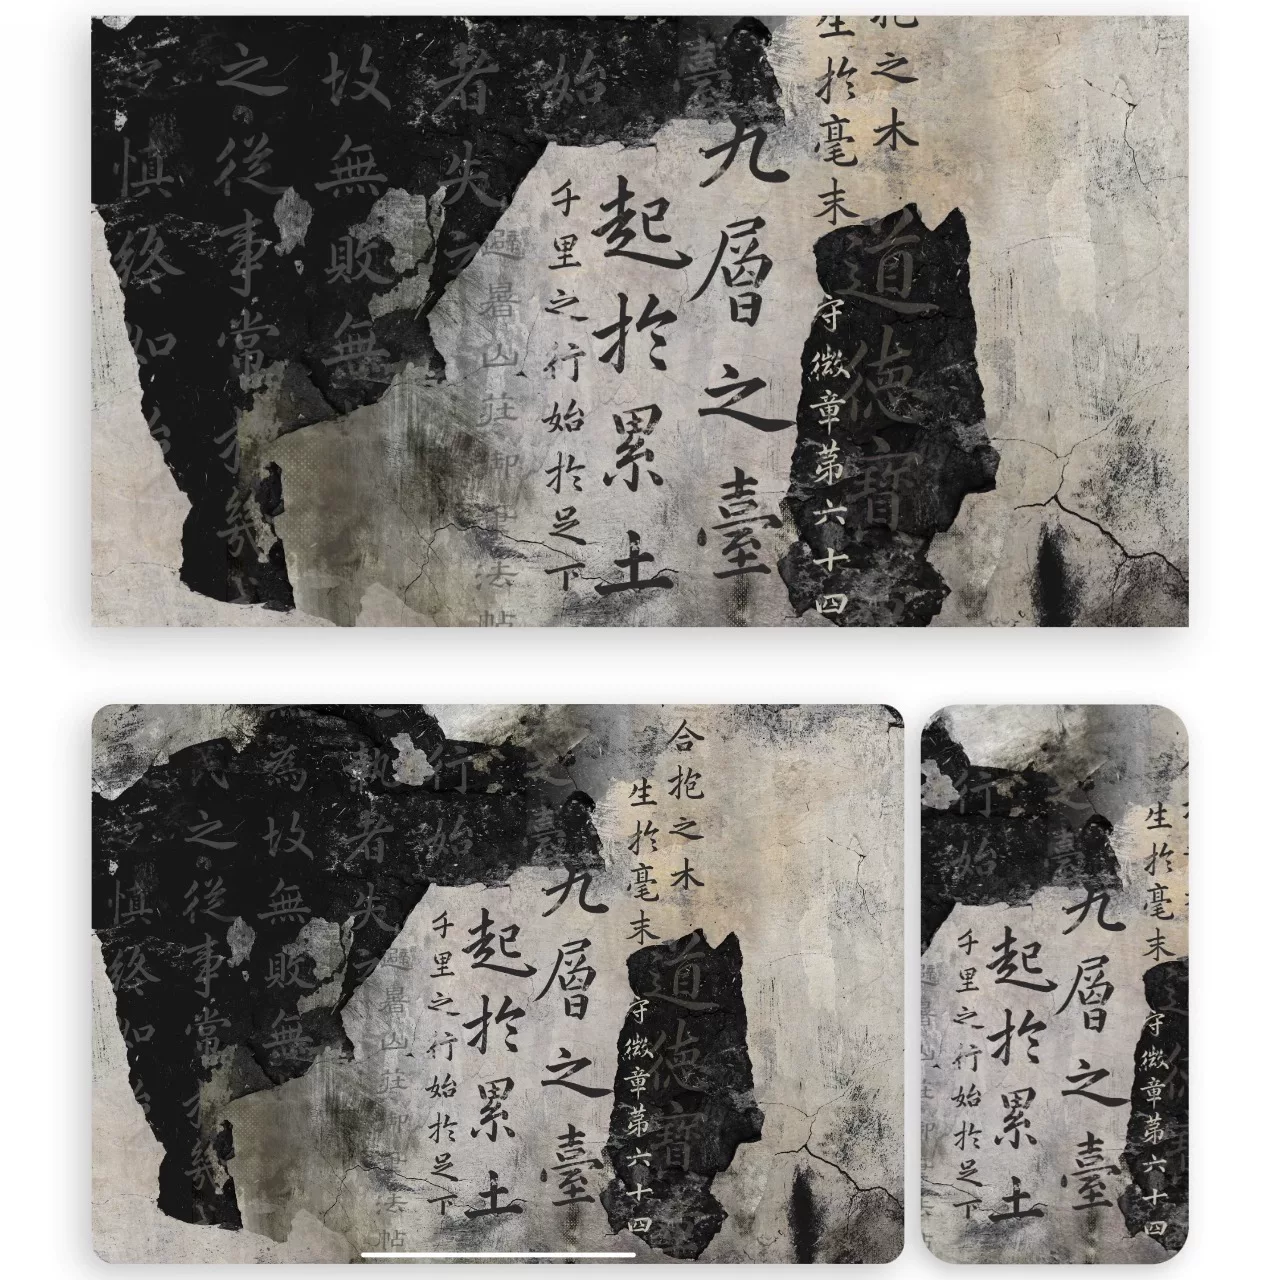 抱之木
生於毫末
道德寶
守微章第六十四
臺
九層之臺
起於累土
始
千里之行始於足下
避暑山莊御
法帖
者失之
故無敗無
之從事常於幾
慎終如始
合抱之木
生於毫末
道德寶
守微章第六十四
之臺
九層之臺
起於累土
行始
千里之行始於足下
避暑山莊御
法帖
執者失之
為故無敗無
民之從事常於幾
慎終如始
生於毫末
守微章第六十四
之臺
九層之臺
起於累土
行始
千里之行始於足下